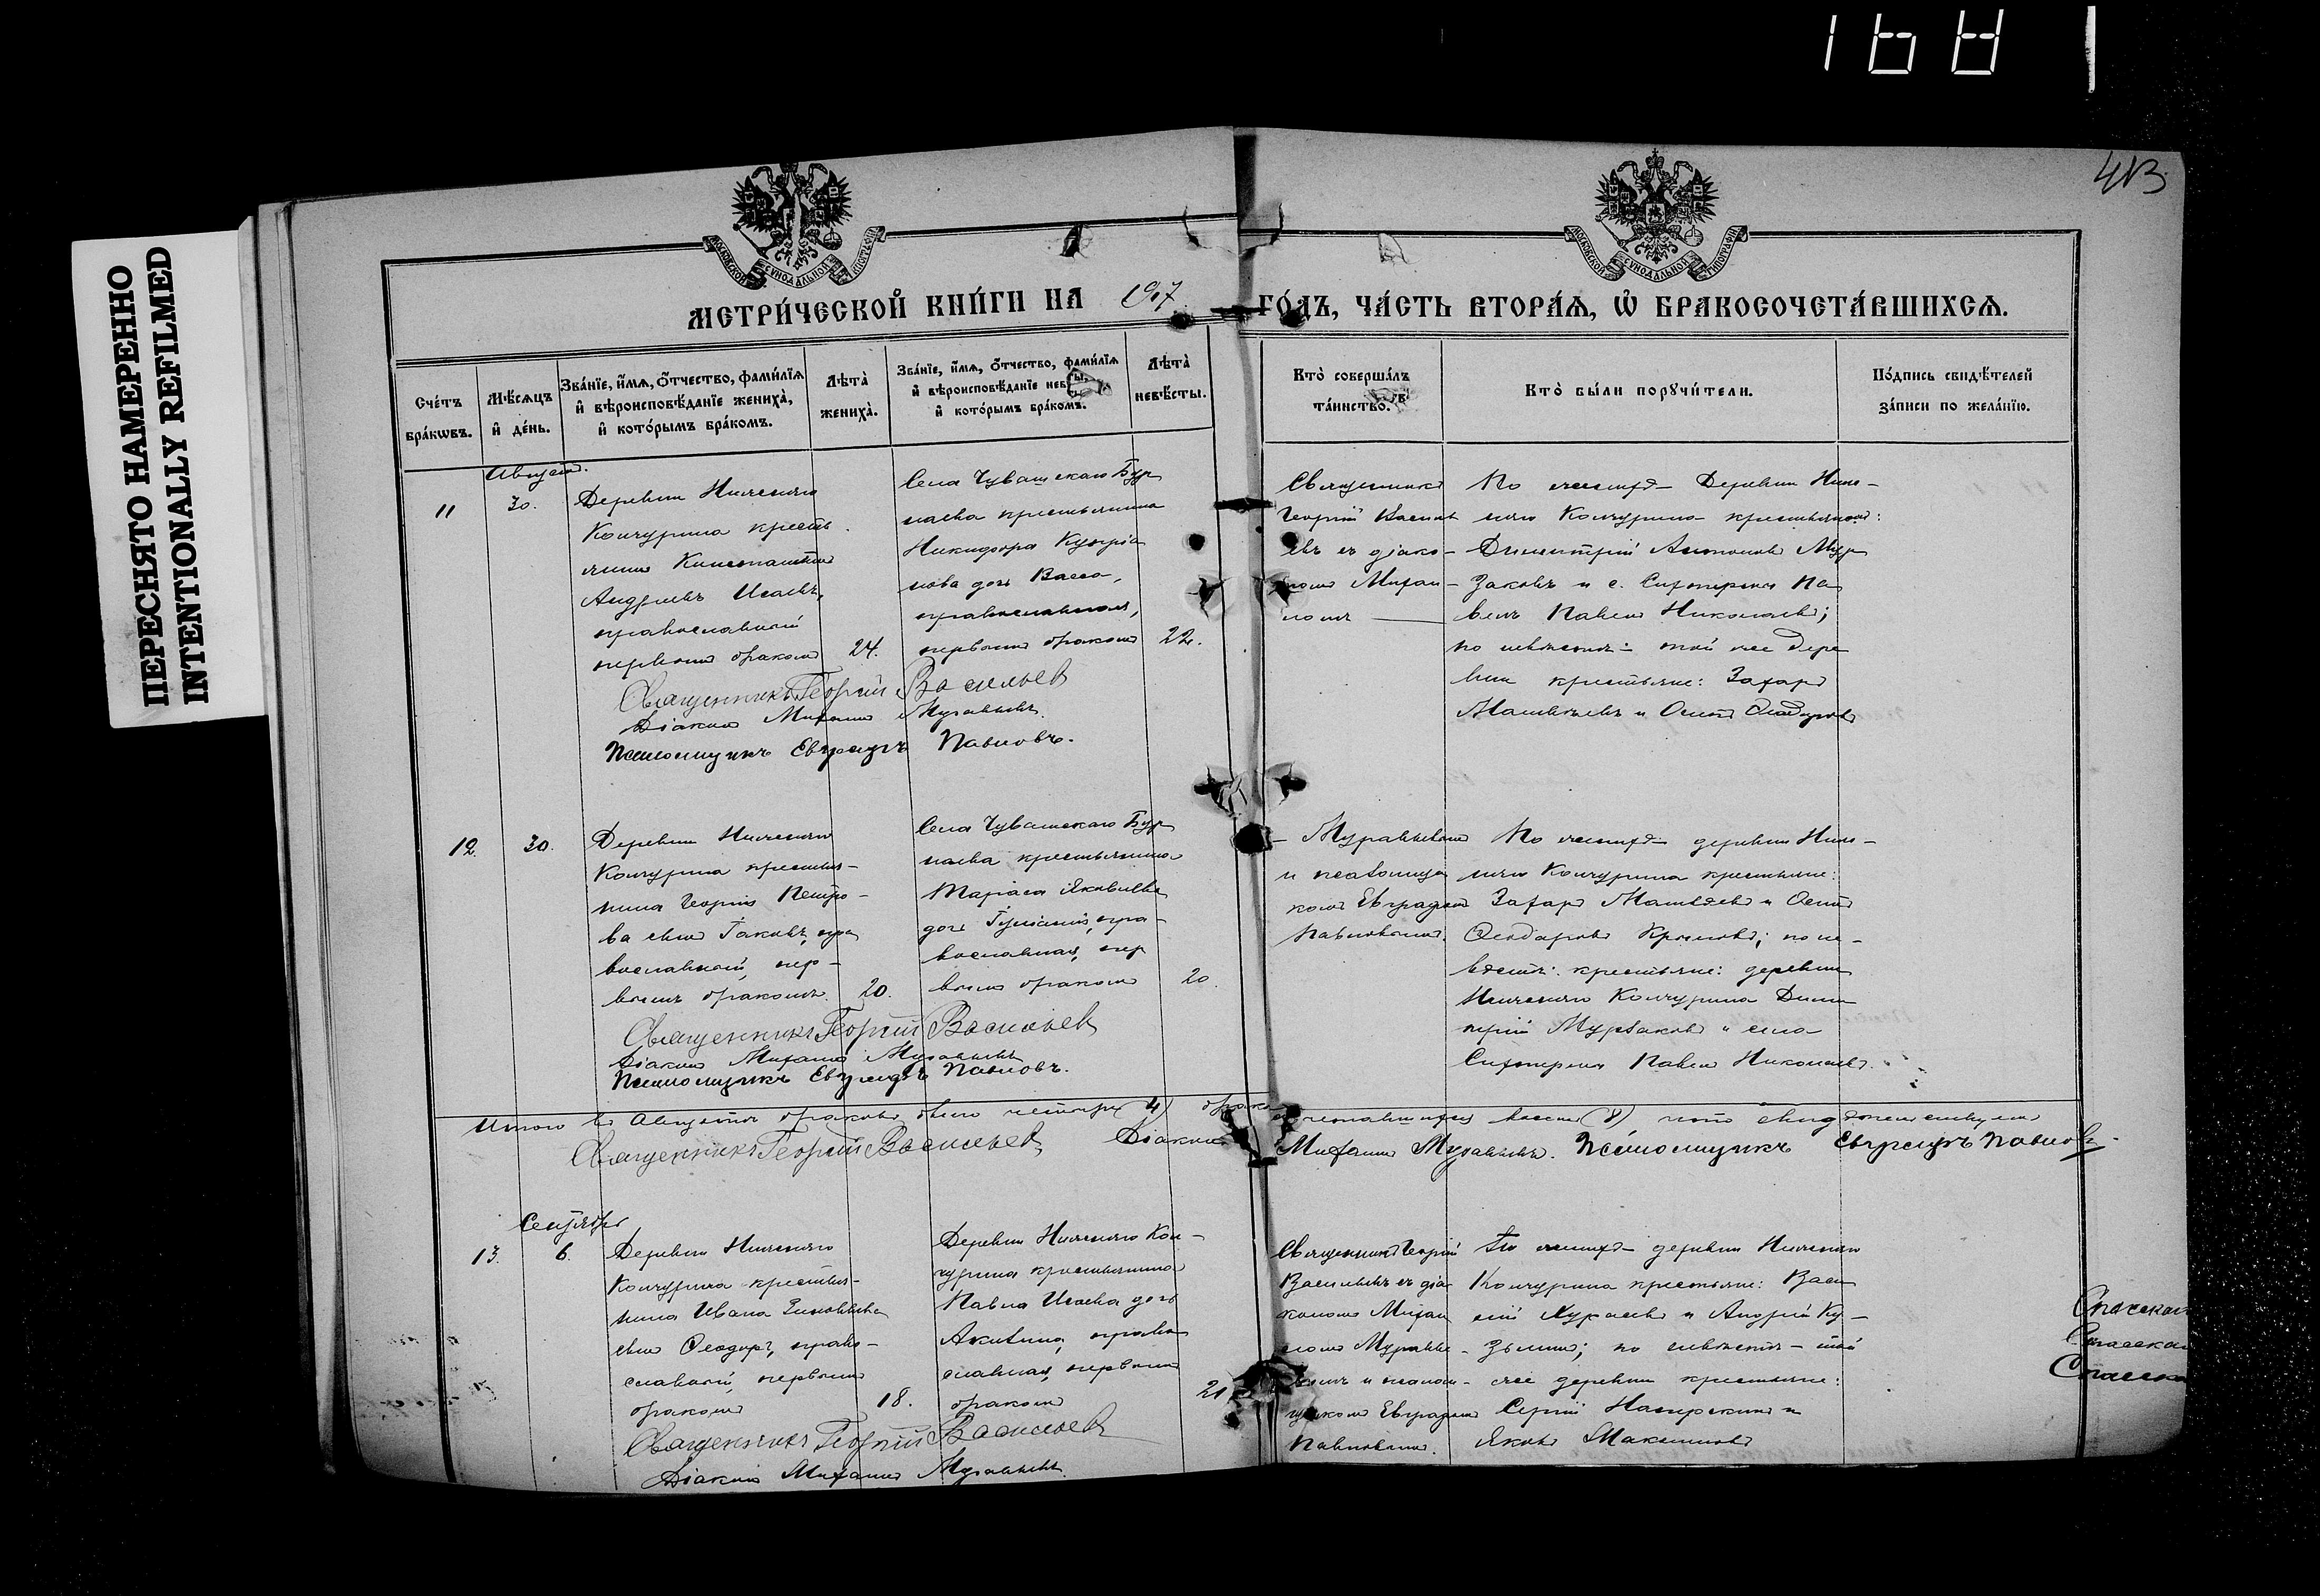 1681
413
ПЕРЕСНЯТО НАМЕРЕННО
INTENTIONALLY REFILMED
МОСКОВСКОЙ СѴНОДАЛЬНОЙ ТИПОГРАФІИ
МОСКОВСКОЙ СѴНОДАЛЬНОЙ ТИПОГРАФІИ
МЕТРИ́ЧЕСКОЙ КНИ́ГИ НА 1907 ГО́ДЪ, ЧА́СТЬ ВТОРА́Я, Ѡ БРАКОСОЧЕТА́ВШИХСЯ.
Сче́тъ бра́кѡвъ.
Мѣ́сяцъ и де́нь.
Зва́нїе, и́мя, ѻ́тчество, фами́лїя и вѣроисповѣ́данїе жениха̀, и кото́рымъ бра́комъ.
Лѣта̀ жениха̀.
Зва́нїе, и́мя, ѻ́тчество, фами́лїя и вѣроисповѣ́данїе невѣ́сты, и кото́рымъ бра́комъ.
Лѣта̀ невѣ́сты.
Кто̀ соверша́лъ та́инство.
Кто̀ бы́ли порꙋчи́тели.
По́дпись свидѣ́телей за́писи по жела́нїю.
Августъ.
11
30.
Деревни Нижняго
Кончурина кресть
янинъ Константинъ
Андреевъ Исаевъ,
православный
первымъ бракомъ
24.
Села Чувашскаго Бур
наева крестьянина
Никифора Купріа
нова дочь Васса,
православная,
первымъ бракомъ
22.
Священникъ
Георгій Василь
евъ съ діако-
номъ Михаи-
ломъ
По женихѣ- Деревни Ниж-
няго Кончурина крестьянинъ:
Димитрій Антоновъ Мур
заковъ и с. Сиктерма Па
велъ Павловъ Николаевъ;
по невѣстѣ- той же дере
вни крестьяне: Захаръ
Матвѣевъ и Осипъ Ѳеодоровъ
Священникъ Георгій Васильевъ
Діаконъ Михаилъ Муравьевъ.
Псаломщикъ Евграфъ Павловъ.
12.
30.
Деревни Нижняго
Кончурина крестья-
нина Георгія Петро-
ва сынъ Іаковъ, пра
вославный, пер-
вымъ бракомъ.
20.
Села Чувашскаго Бур
наева крестьянина
Тараса Яковлева
дочь Іуліанія, пра-
вославная, пер
вымъ бракомъ
20.
- Муравьевымъ
и псаломщи
комъ Евграфомъ
Павловымъ.
По женихѣ- деревни Ниж-
няго Кончурина крестьяне:
Захаръ Матвѣевъ и Осипъ
Ѳеодоровъ Крыловъ; по не-
вѣстѣ: крестьяне: деревни
Нижняго Кончурина Дими
трій Мурзаковъ и села
Сиктерма Павелъ Николаевъ.
Священникъ Георгій Васильевъ
Діаконъ Михаилъ Муравьевъ
Псаломщикъ Евграфъ Павловъ.
Итого въ Августѣ браковъ было четыре (4) брако сочетавшихся восемь (8), что свидѣтельствуемъ
Священникъ Георгій Васильевъ Діаконъ Михаилъ Муравьевъ. Псаломщикъ Евграфъ Павловъ.
Сентябрь
13.
6.
Деревни Нижняго
Кончурина крестья-
нина Ивана Зиновьева
сынъ Ѳеодоръ, право-
славный, первымъ
бракомъ
18.
Деревни Нижняго Кон-
чурина крестьянина
Павла Исаева дочь
Акилина, право
славная, первымъ
бракомъ
21
Священникъ Георгій
Васильевъ съ діа
кономъ Михаи
ломъ Муравье-
вымъ и псалом-
щикомъ Евграфомъ
Павловымъ.
По женихѣ- деревни Нижняго
Кончурина крестьяне: Васи
лій и Андрей Ку-
зьминъ; по невѣстѣ- той
же деревни крестьяне:
Сергій и
Яковъ Максимовъ
Священникъ Георгій Васильевъ
Діаконъ Михаилъ Муравьевъ.